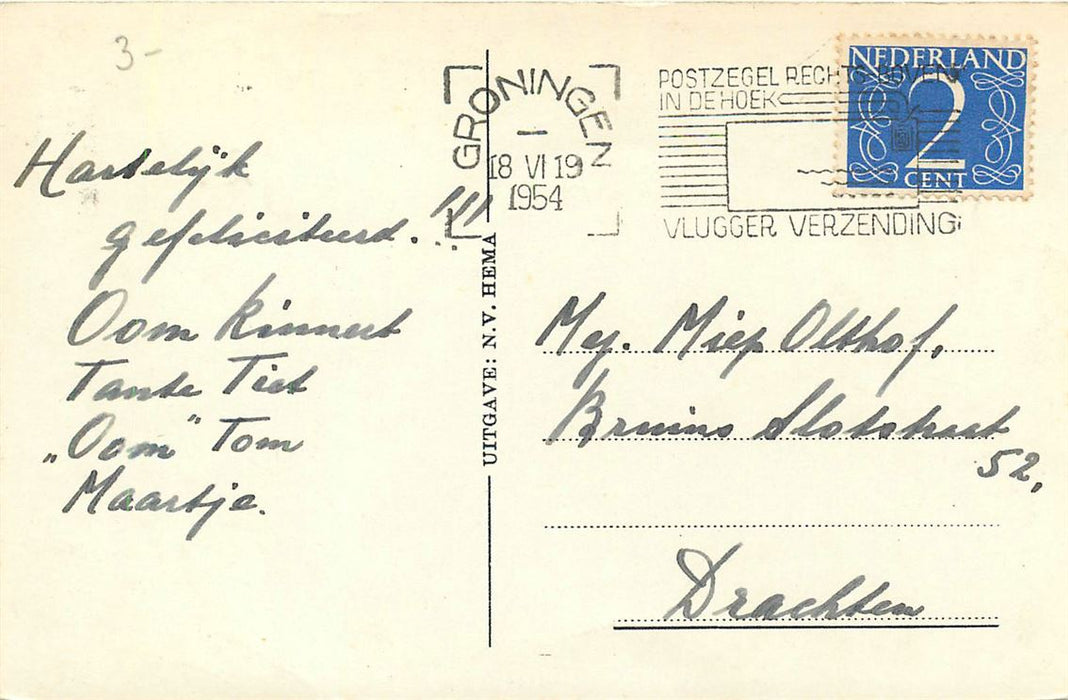 3-
Hartelijk
gefeliciteerd.!!!
Oom Rinnert
Tante Tiet
„Oom" Tom
Maartje.
UITGAVE: N.V. HEMA
GRONINGEN
18 VI 19
1954
POSTZEGEL RECHTS BOVEN
IN DE HOEK
VLUGGER VERZENDING
NEDERLAND
2
CENT
Mej. Miep Olthof,
Bruins Slotstraat
52,
Drachten